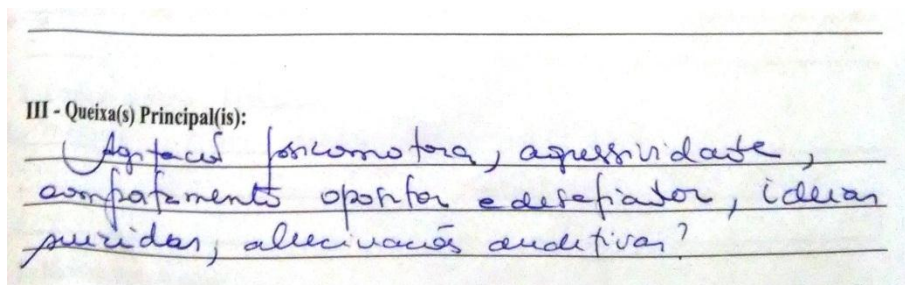 III - Queixa(s) Principal(is):
Agitação psicomotora, agressividade,
comportamento opositor e desafiador, ideias
suicidas, alucinações auditivas?